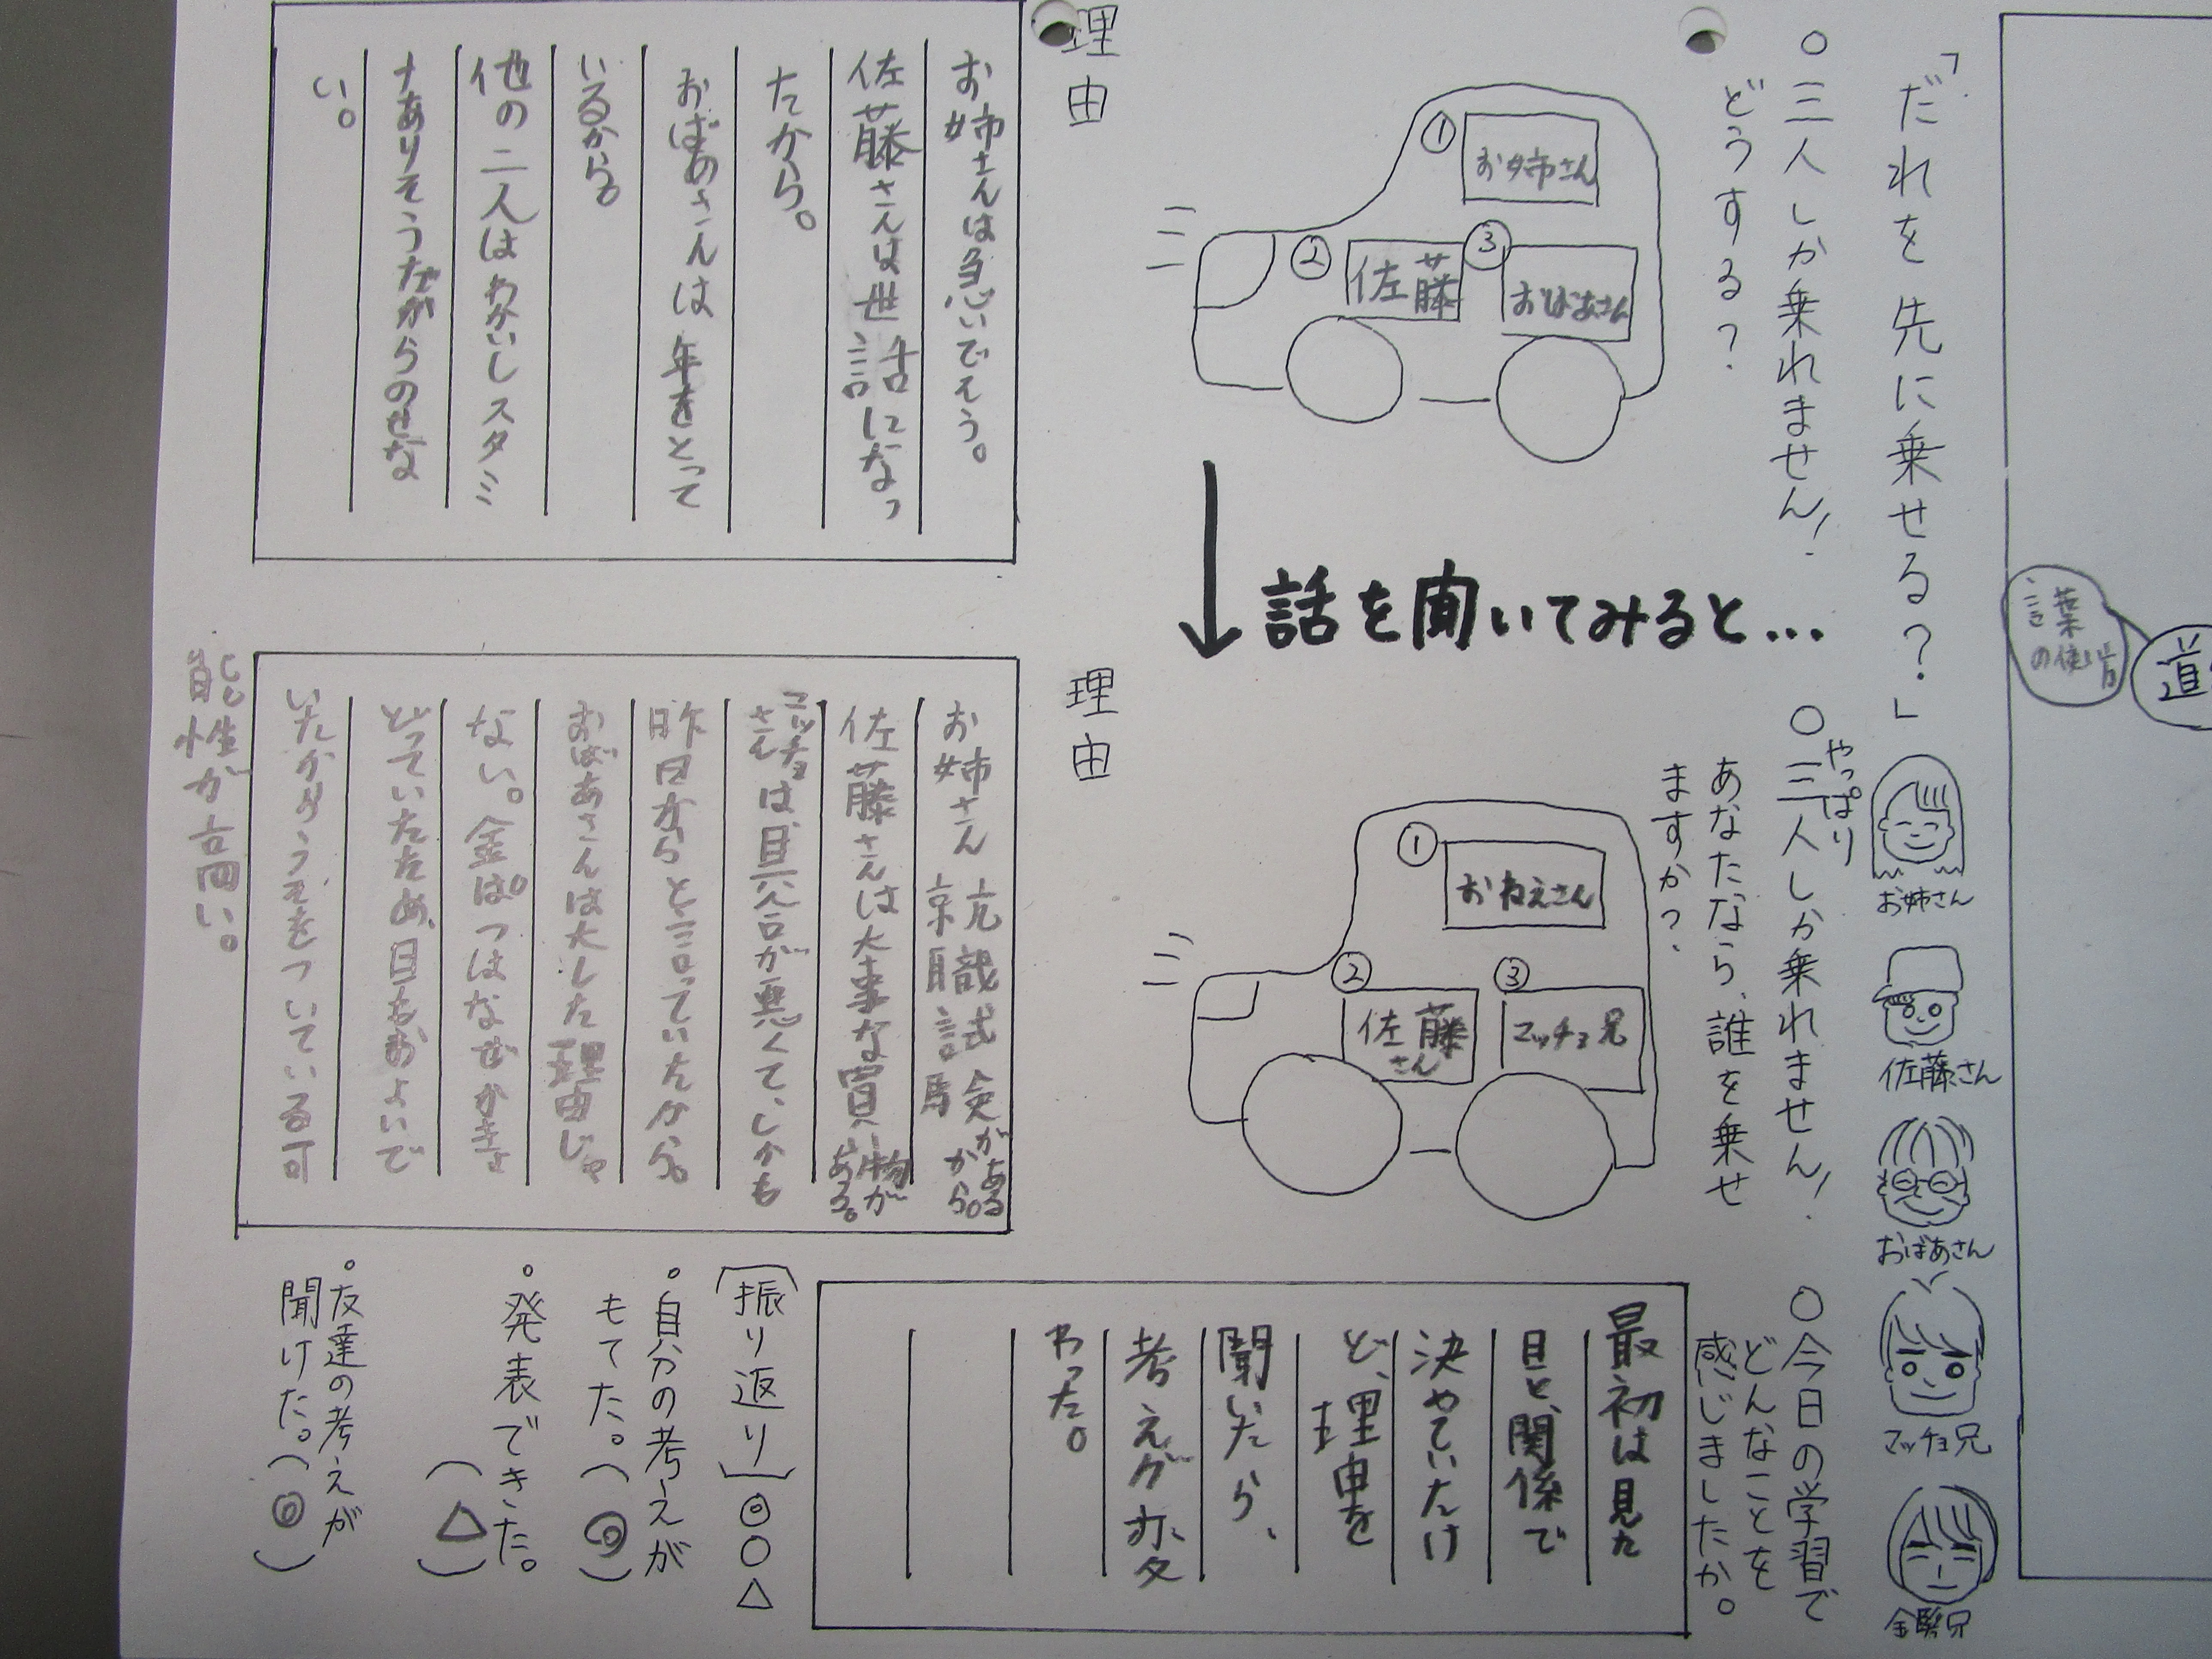 道
言葉の使い方
「だれを先に乗せる？」
お姉さん
佐藤さん
おばあさん
マッチョ兄
金髪兄
○三人しか乗れません！
どうする？
①
お姉さん
②
佐藤
③
おばあさん
理由
お姉さんは急いでそう。
佐藤さんは世話になっ
たから。
おばあさんは年をとって
いるから。
他の二人はわかいしスタミ
ナありそうだからのせな
い。
話を聞いてみると…
○やっぱり三人しか乗れません！
あなたなら、誰を乗せ
ますか？
①
おねえさん
②
佐藤さん
③
マッチョ兄
理由
お姉さん就職試験があるから。
佐藤さんは大事な買い物がある。
マッチョさんは具合が悪くて、しかも
昨日からと言っていたから。
おばあさんは大した理由じゃ
ない。金ぱつはなぜかき
どっていたため、目もおよいで
いたからうそをついている可
能性が高い。
○今日の学習で
どんなことを
感じましたか。
最初は見た
目と、関係で
決めていたけ
ど、理由を
聞いたら、
考えが変
わった。
［振り返り］◎○△
。自分の考えが
もてた。（◎）
。発表できた。
（△）
。友達の考えが
聞けた。（◎）